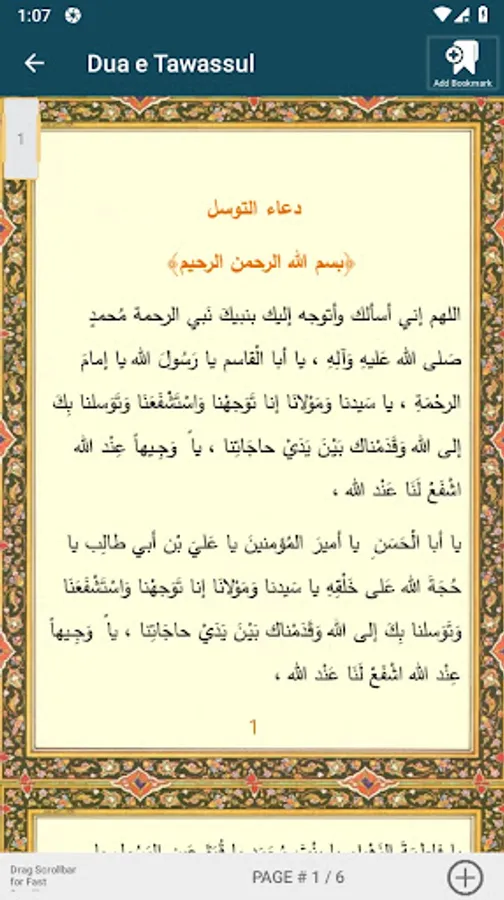 1:07
Dua e Tawassul
Add Bookmark
1
دعاء التوسل
﴿بسم الله الرحمن الرحيم﴾
اللهم إني أسألك وأتوجه إليك بنبيك نَبي الرحمة مُحمدٍ
صَلى الله عَليهِ وَآلِهِ ، يا أبا الْقاسم يا رَسُولَ الله يا إمامَ
الرحْمَةِ ، يا سَيدنا وَمَوْلانَا إنا تَوَجهْنا وَاسْتَشْفَعَنَا وَتَوَسلنا بِكَ
إلى الله وَقَدَمْناك بَيْنَ يَدَيْ حاجَاتِنا ، ياً وَجِيهاً عِنْد الله
اشْفَعْ لَنَا عَنْد الله ،
يا أبا الْحَسَنِ يا أميرَ المُؤمنينَ يا عَليَ بْن أبي طالِب يا
حُجَةَ الله عَلى خَلْقِهِ يا سَيدنا وَمَوْلانَا إنا تَوَجهْنا وَاسْتَشْفَعَنَا
وَتَوَسلنا بِكَ إلى الله وَقَدَمْناك بَيْنَ يَدَيْ حاجَاتِنا ، ياً وَجِيهاً
عِنْد الله اشْفَعْ لَنَا عَنْد الله ،
1
Drag Scrollbar
for Fast
PAGE # 1 / 6